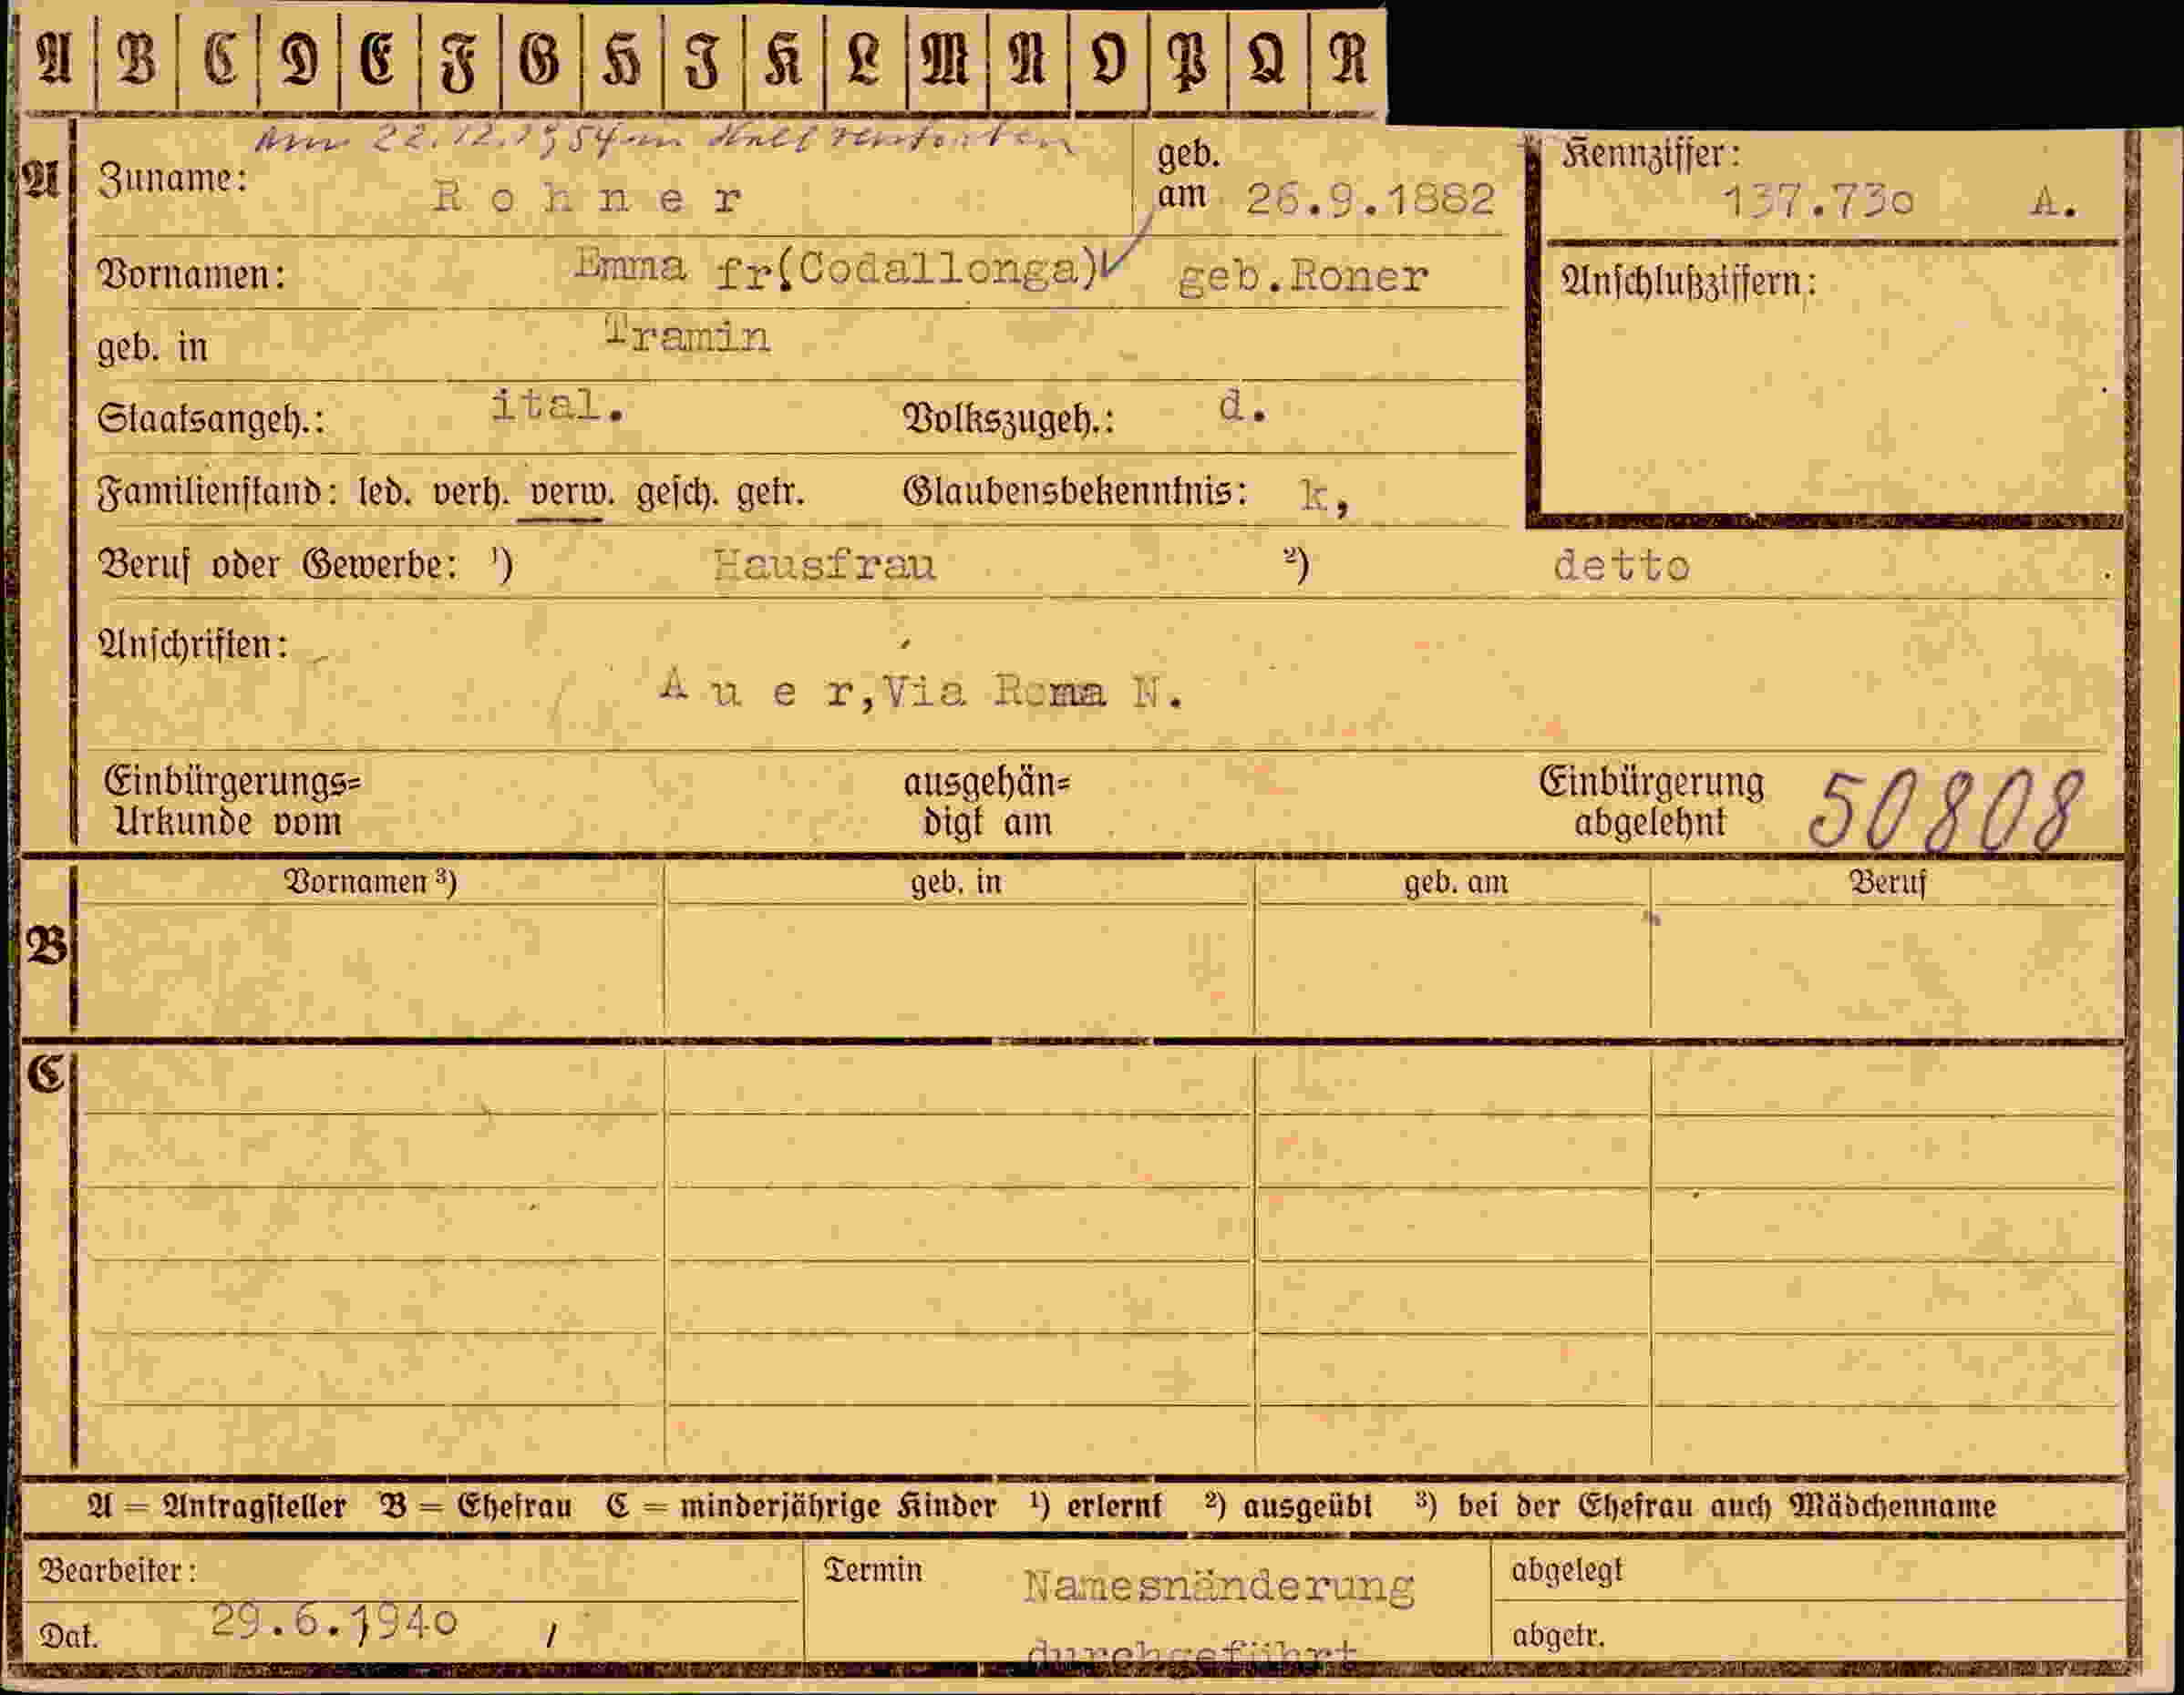 A B C D E F G H I K L M N O P Q R
am 22.12.1954 in Hall verstorben
A Zuname: Rohner geb. am 26.9.1882 Kennziffer: 137.730 A.
Vornamen: Emma fr(Codallonga) geb.Roner Anschlußziffern:
geb. in Tramin
Staatsangeh.: ital. Volkszugeh.: d.
Familienstand: led. verh. verw. gesch. getr. Glaubensbekenntnis: k,
Beruf oder Gewerbe: ¹) Hausfrau ²) detto
Anschriften:
Auer,Via Roma N.
Einbürgerungs= ausgehän= Einbürgerung 50808
Urkunde vom digt am abgelehnt
Vornamen ³) geb. in geb. am Beruf
B
C
A = Antragsteller B = Ehefrau C = minderjährige Kinder ¹) erlernt ²) ausgeübt ³) bei der Ehefrau auch Mädchenname
Bearbeiter: Termin Namesnänderung abgelegt
Dat. 29.6.1940 / durchgeführt abgetr.